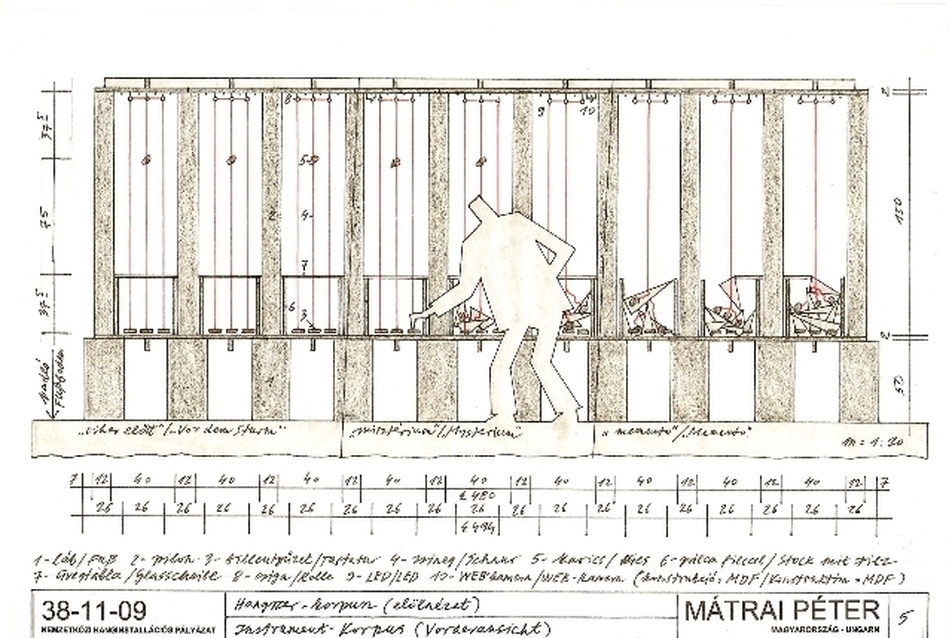 37⁵
75
37⁵
padló
Fußboden
8
9
10
5-
2-
4-
7
6
3
1
2
150
2
50
„vihar előtt"/„Vor dem Sturm"
„misztérium"/„Mysterium"
„mementó"/„Memento"
m = 1:20
7 12 40 12 40 12 40 12 40 12 40 12 40 12 40 12 40 12 40 12 7
4480
26 26 26 26 26 26 26 26 26 26 26 26 26 26 26 26 26 26 26
4494
1- láb/Fuß 2- pilon 3- billentyűzet/Tastatur 4- zsineg/Schnur 5- kavics/Kies 6- pálca filccel/Stock mit Filz
7- üvegtábla/Glasscheibe 8- csiga/Rolle 9- LED/LED 10- WEBkamera/WEB-Kamera (konstrukció: MDF/Konstruktion = MDF)
38-11-09
NEMZETKÖZI HANGINSTALLÁCIÓS PÁLYÁZAT
Hangszer-korpusz (elölnézet)
Instrument-Korpus (Vorderansicht)
MÁTRAI PÉTER
MAGYARORSZÁG - UNGARN
5